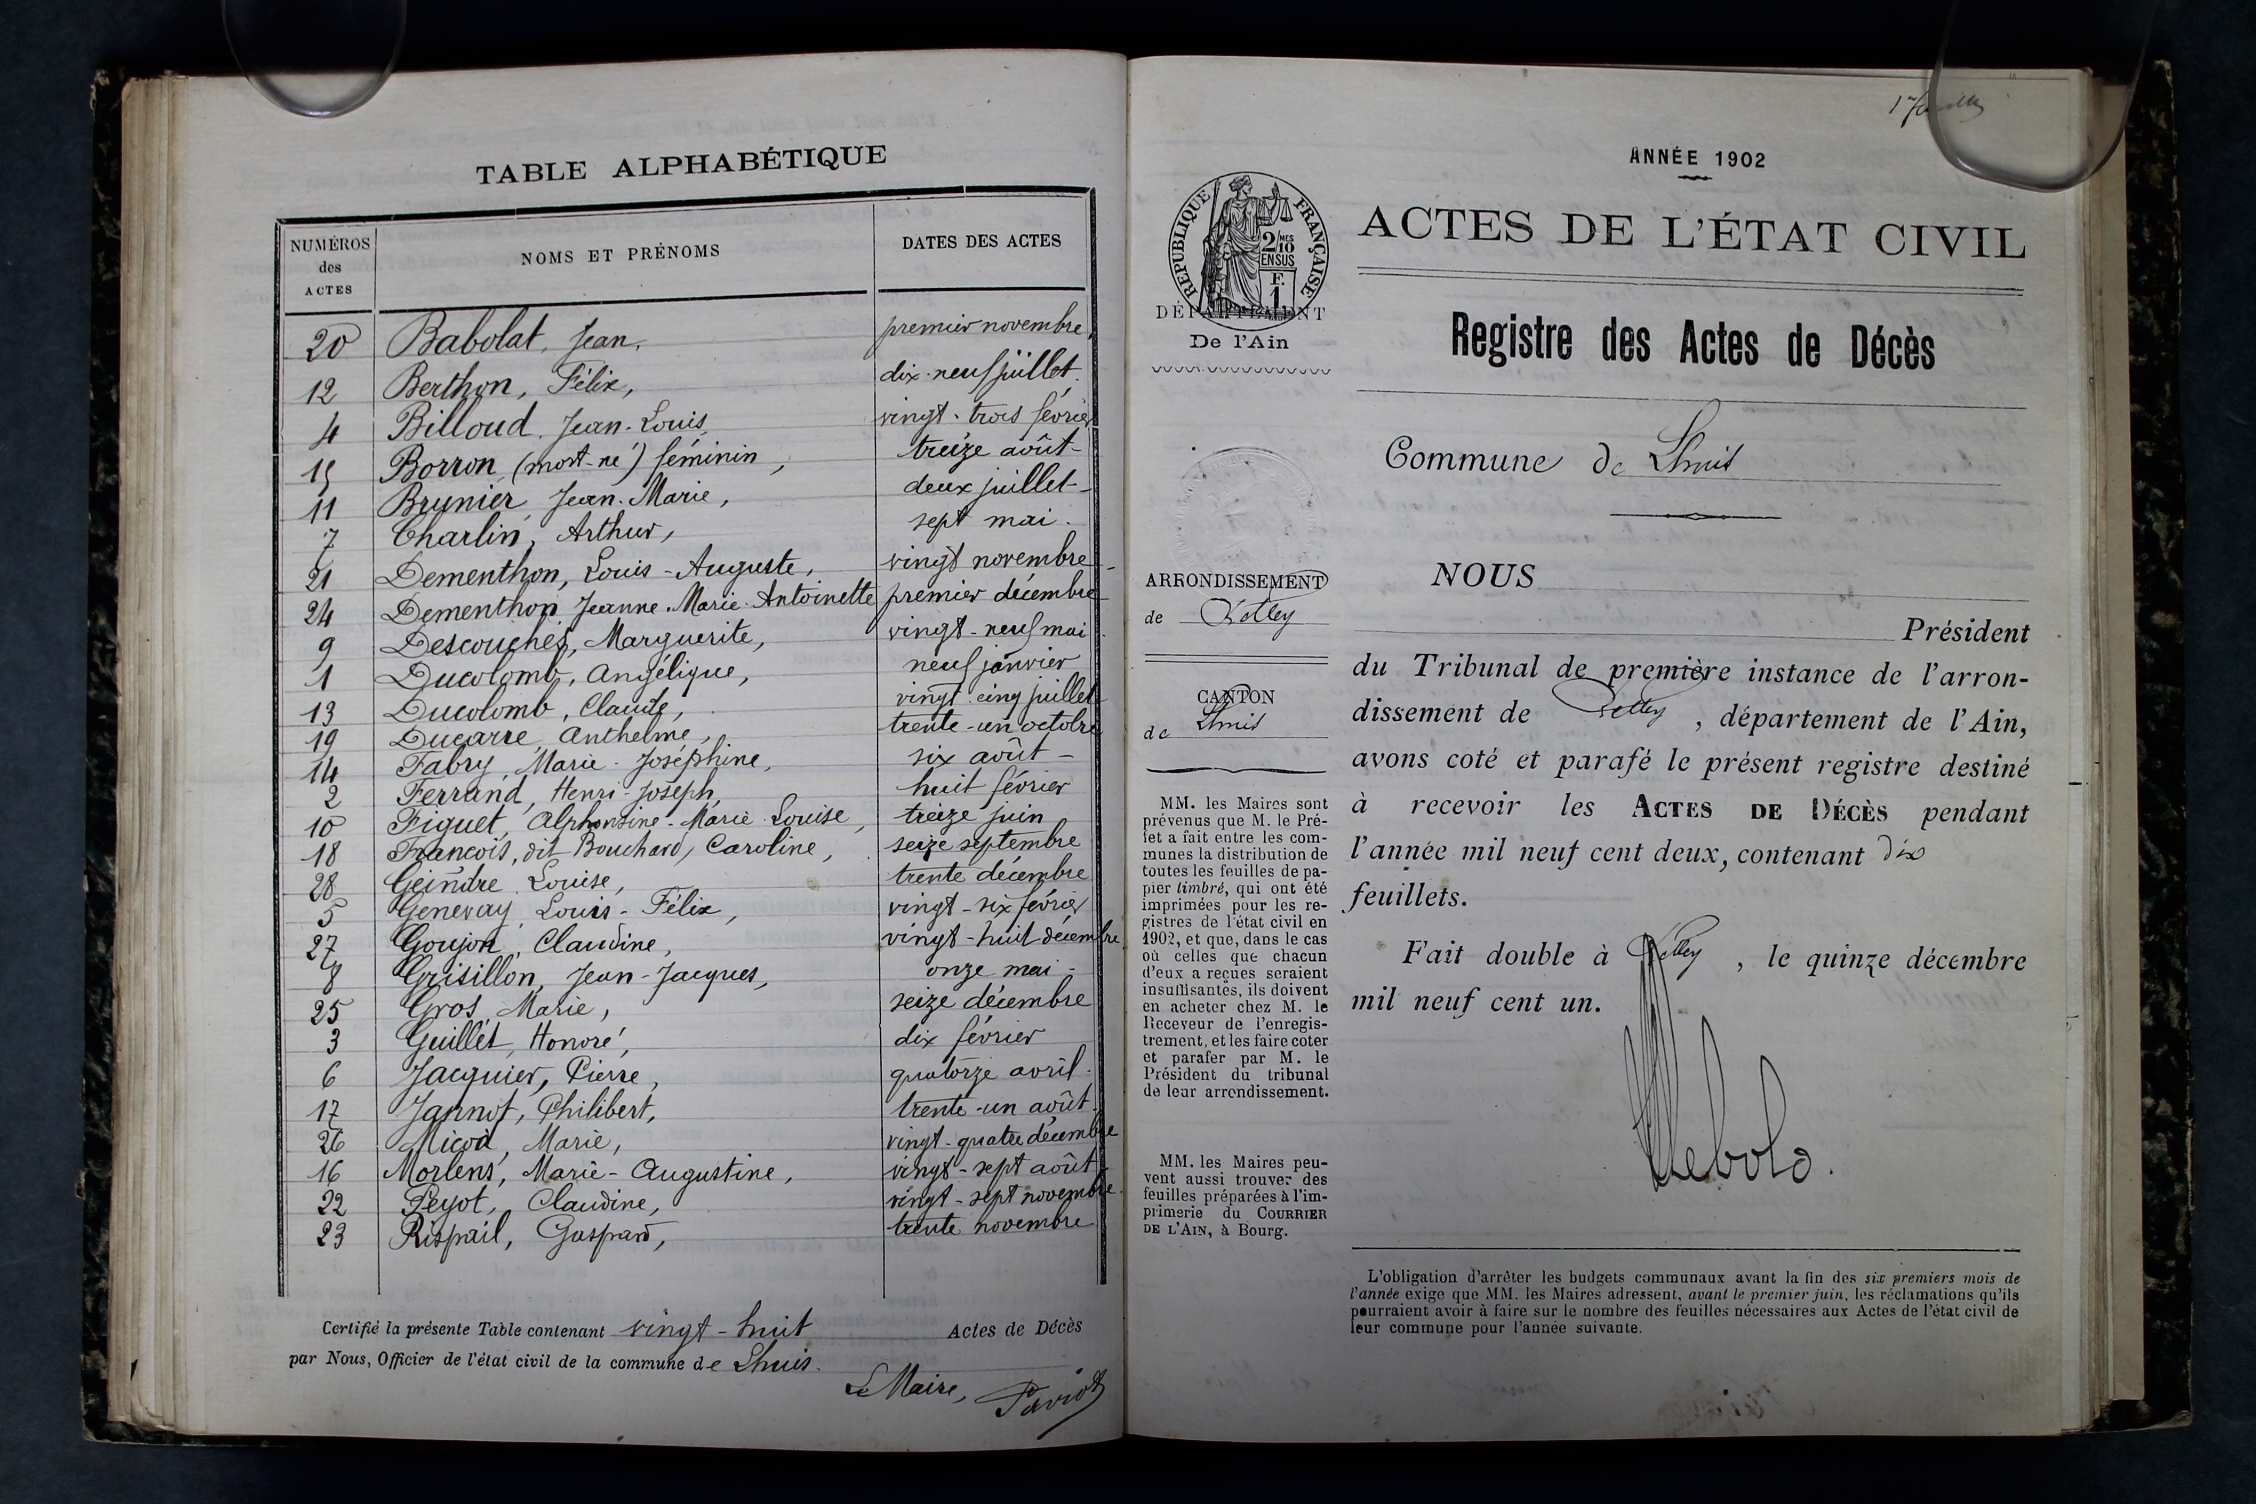 TABLE ALPHABÉTIQUE
NUMÉROS des ACTES NOMS ET PRÉNOMS DATES DES ACTES
20 Babolat, Jean, premier novembre
12 Berthon, Félix, dix-neuf juillet
4 Billoud, Jean-Louis, vingt-trois février
15 Borron (mort-né) féminin, treize août
11 Brunier, Jean-Marie, deux juillet
7 Charlin, Arthur, sept mai
21 Dementhon, Louis-Auguste, vingt novembre
24 Dementhon, Jeanne-Marie-Antoinette premier décembre
9 Descouches, Marguerite, vingt-neuf mai
1 Ducolomb, Angélique, neuf janvier
13 Ducolomb, Claude, vingt-cinq juillet
19 Ducarre, Anthelme, trente-un octobre
14 Fabry, Marie-Joséphine, six août
2 Ferrand, Henri-Joseph huit février
10 Figuet, Alphonsine-Marie-Louise, treize juin
18 François, dit Bouchard, Caroline, seize septembre
28 Geindre, Louise, trente décembre
5 Genevay, Louis-Félix, vingt-six février
27 Goujon, Claudine, vingt-huit décembre
8 Grisillon, Jean-Jacques, onze mai
25 Gros, Marie, seize décembre
3 Guillet, Honoré, dix février
6 Jacquier, Pierre, quatorze avril
17 Jannot, Philibert, trente-un août
26 Micod, Marie, vingt-quatre décembre
16 Morlens, Marie-Augustine, vingt-sept août
22 Peyot, Claudine, vingt-sept novembre
23 Rispail, Gaspard, trente novembre
Certifié la présente Table contenant vingt-huit Actes de Décès
par Nous, Officier de l'état civil de la commune de Lhuis.
Le Maire,
ANNÉE 1902
RÉPUBLIQUE FRANÇAISE
2/10 MES
EN SUS
F.
1
DÉPARTEMENT
De l'Ain
ACTES DE L'ÉTAT CIVIL
Registre des Actes de Décès
Commune de Lhuis
ARRONDISSEMENT
de Belley
CANTON
de Lhuis
MM. les Maires sont
prévenus que M. le Pré-
fet a fait entre les com-
munes la distribution de
toutes les feuilles de pa-
pier timbré, qui ont été
imprimées pour les re-
gistres de l'état civil en
1902, et que, dans le cas
où celles que chacun
d'eux a reçues seraient
insuffisantes, ils doivent
en acheter chez M. le
Receveur de l'enregis-
trement, et les faire coter
et parafer par M. le
Président du tribunal
de leur arrondissement.
MM. les Maires peu-
vent aussi trouver des
feuilles préparées à l'im-
primerie du COURRIER
DE L'AIN, à Bourg.
NOUS
Président
du Tribunal de première instance de l'arron-
dissement de Belley, département de l'Ain,
avons coté et parafé le présent registre destiné
à recevoir les ACTES DE DÉCÈS pendant
l'année mil neuf cent deux, contenant dix
feuillets.
Fait double à Belley, le quinze décembre
mil neuf cent un.
L'obligation d'arrêter les budgets communaux avant la fin des six premiers mois de
l'année exige que MM. les Maires adressent, avant le premier juin, les réclamations qu'ils
pourraient avoir à faire sur le nombre des feuilles nécessaires aux Actes de l'état civil de
leur commune pour l'année suivante.